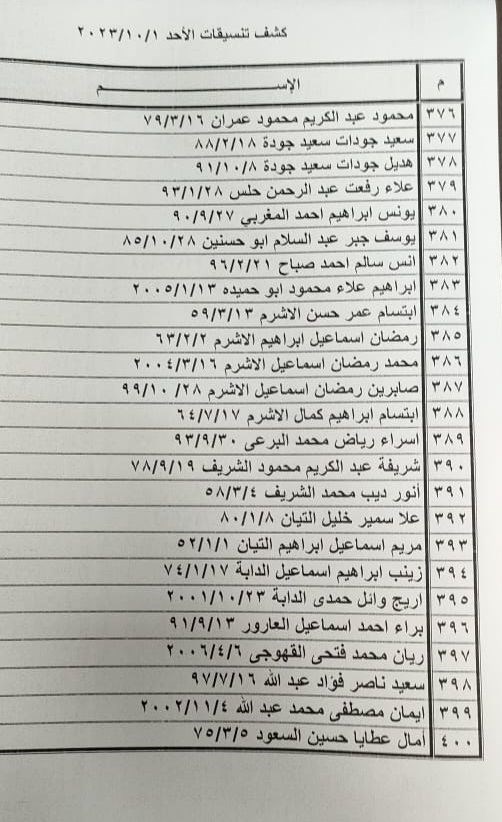 كشف تنسيقات الأحد ٢٠٢٣/١٠/١
م الإســــــــــــم
٣٧٦ محمود عبد الكريم محمود عمران ٧٩/٣/١٦
٣٧٧ سعيد جودات سعيد جودة ٨٨/٢/١٨
٣٧٨ هديل جودات سعيد جودة ٩١/١٠/٨
٣٧٩ علاء رفعت عبد الرحمن حلس ٩٣/١/٢٨
٣٨٠ يونس ابراهيم احمد المغربي ٩٠/٩/٢٧
٣٨١ يوسف جبر عبد السلام ابو حسنين ٨٥/١٠/٢٨
٣٨٢ انس سالم احمد صباح ٩٦/٢/٢١
٣٨٣ ابراهيم علاء محمود ابو حميده ٢٠٠٥/١/١٣
٣٨٤ ابتسام عمر حسن الاشرم ٥٩/٣/١٣
٣٨٥ رمضان اسماعيل ابراهيم الاشرم ٦٣/٢/٢
٣٨٦ محمد رمضان اسماعيل الاشرم ٢٠٠٤/٣/١٦
٣٨٧ صابرين رمضان اسماعيل الاشرم ٩٩/١٠/٢٨
٣٨٨ ابتسام ابراهيم كمال الاشرم ٦٤/٧/١٧
٣٨٩ اسراء رياض محمد البرعى ٩٣/٩/٣٠
٣٩٠ شريفة عبد الكريم محمود الشريف ٧٨/٩/١٩
٣٩١ أنور ديب محمد الشريف ٥٨/٣/٤
٣٩٢ علا سمير خليل التيان ٨٠/١/٨
٣٩٣ مريم اسماعيل ابراهيم التيان ٥٢/١/١
٣٩٤ زينب ابراهيم اسماعيل الدابة ٧٤/١/١٧
٣٩٥ اريج وائل حمدى الدابة ٢٠٠١/١٠/٢٣
٣٩٦ براء احمد اسماعيل العارور ٩١/٩/١٣
٣٩٧ ريان محمد فتحى القهوجى ٢٠٠٦/٤/٦
٣٩٨ سعيد ناصر فؤاد عبد الله ٩٧/٧/١٦
٣٩٩ ايمان مصطفى محمد عبد الله ٢٠٠٢/١١/٤
٤٠٠ امال عطايا حسين السعود ٧٥/٣/٥